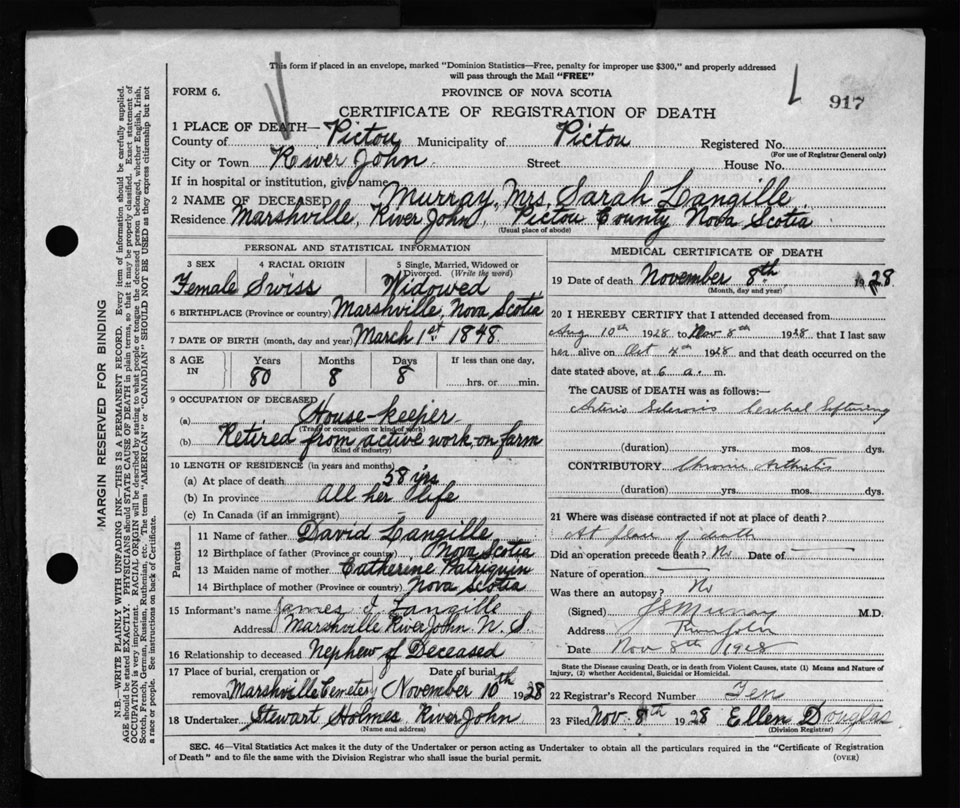 This form if placed in an envelope, marked "Dominion Statistics—Free, penalty for improper use $300," and properly addressed
will pass through the Mail "FREE"
FORM 6.
PROVINCE OF NOVA SCOTIA
917
CERTIFICATE OF REGISTRATION OF DEATH
1 PLACE OF DEATH—
County of Pictou Municipality of Pictou Registered No.
(For use of Registrar General only)
City or Town River John Street House No.
If in hospital or institution, give name
2 NAME OF DECEASED Murray, Mrs. Sarah Langille
Residence Marshville, River John, Pictou County Nova Scotia
(Usual place of abode)
PERSONAL AND STATISTICAL INFORMATION
3 SEX 4 RACIAL ORIGIN 5 Single, Married, Widowed or
Divorced. (Write the word)
Female Swiss Widowed
6 BIRTHPLACE (Province or country) Marshville, Nova Scotia
7 DATE OF BIRTH (month, day and year) March 1st 1848.
8 AGE IN Years Months Days If less than one day,
80 8 8 hrs. or min.
9 OCCUPATION OF DECEASED
(a) House-keeper
(Trade or occupation or kind of work)
(b) Retired from active work, on farm
(Kind of industry)
10 LENGTH OF RESIDENCE (in years and months)
(a) At place of death 58 yrs
(b) In province All her life
(c) In Canada (if an immigrant)
Parents
11 Name of father David Langille
12 Birthplace of father (Province or country) Nova Scotia
13 Maiden name of mother Catherine Patriquin
14 Birthplace of mother (Province or country) Nova Scotia
15 Informant's name James J. Langille
Address Marshville River John N. S.
16 Relationship to deceased Nephew of Deceased
17 Place of burial, cremation or Date of burial
removal Marshville Cemetery November 10th 1928
18 Undertaker Stewart Holmes, River John
(Name and address)
MEDICAL CERTIFICATE OF DEATH
19 Date of death November 8th 1928
(Month, day and year)
20 I HEREBY CERTIFY that I attended deceased from
Aug 10th 1928 to Nov 8th 1928 that I last saw
her alive on Oct 4th 1928 and that death occurred on the
date stated above, at 6 a. m.
The CAUSE of DEATH was as follows:
Arterio Sclerosis Cerebral Softening
(duration) yrs. mos. dys.
CONTRIBUTORY Chronic Arthritis
(duration) yrs. mos. dys.
21 Where was disease contracted if not at place of death?
At place of death
Did an operation precede death? No Date of
Nature of operation
Was there an autopsy? No
(Signed) J S Murray M.D.
Address
Date Nov 8th 1928
State the Disease causing Death, or in death from Violent Causes, state (1) Means and Nature of
Injury, (2) whether Accidental, Suicidal or Homicidal.
22 Registrar's Record Number Ten
23 Filed Nov. 8th 1928 Ellen Douglas
(Division Registrar)
SEC. 46—Vital Statistics Act makes it the duty of the Undertaker or person acting as Undertaker to obtain all the particulars required in the "Certificate of Registration
of Death" and to file the same with the Division Registrar who shall issue the burial permit.
(OVER)
MARGIN RESERVED FOR BINDING
N.B.—WRITE PLAINLY WITH UNFADING INK—THIS IS A PERMANENT RECORD. Every item of information should be carefully supplied.
AGE should be stated EXACTLY. PHYSICIANS should STATE CAUSE OF DEATH in plain terms, so that it may be properly classified. Exact statement of
OCCUPATION is very important. RACIAL ORIGIN will be described by stating to what people or tongue the deceased person belonged, whether English, Irish,
Scotch, French, German, Russian, Ruthenian, etc. The terms "AMERICAN" or "CANADIAN" SHOULD NOT BE USED as they express citizenship but not
a race or people. See instructions on back of Certificate.